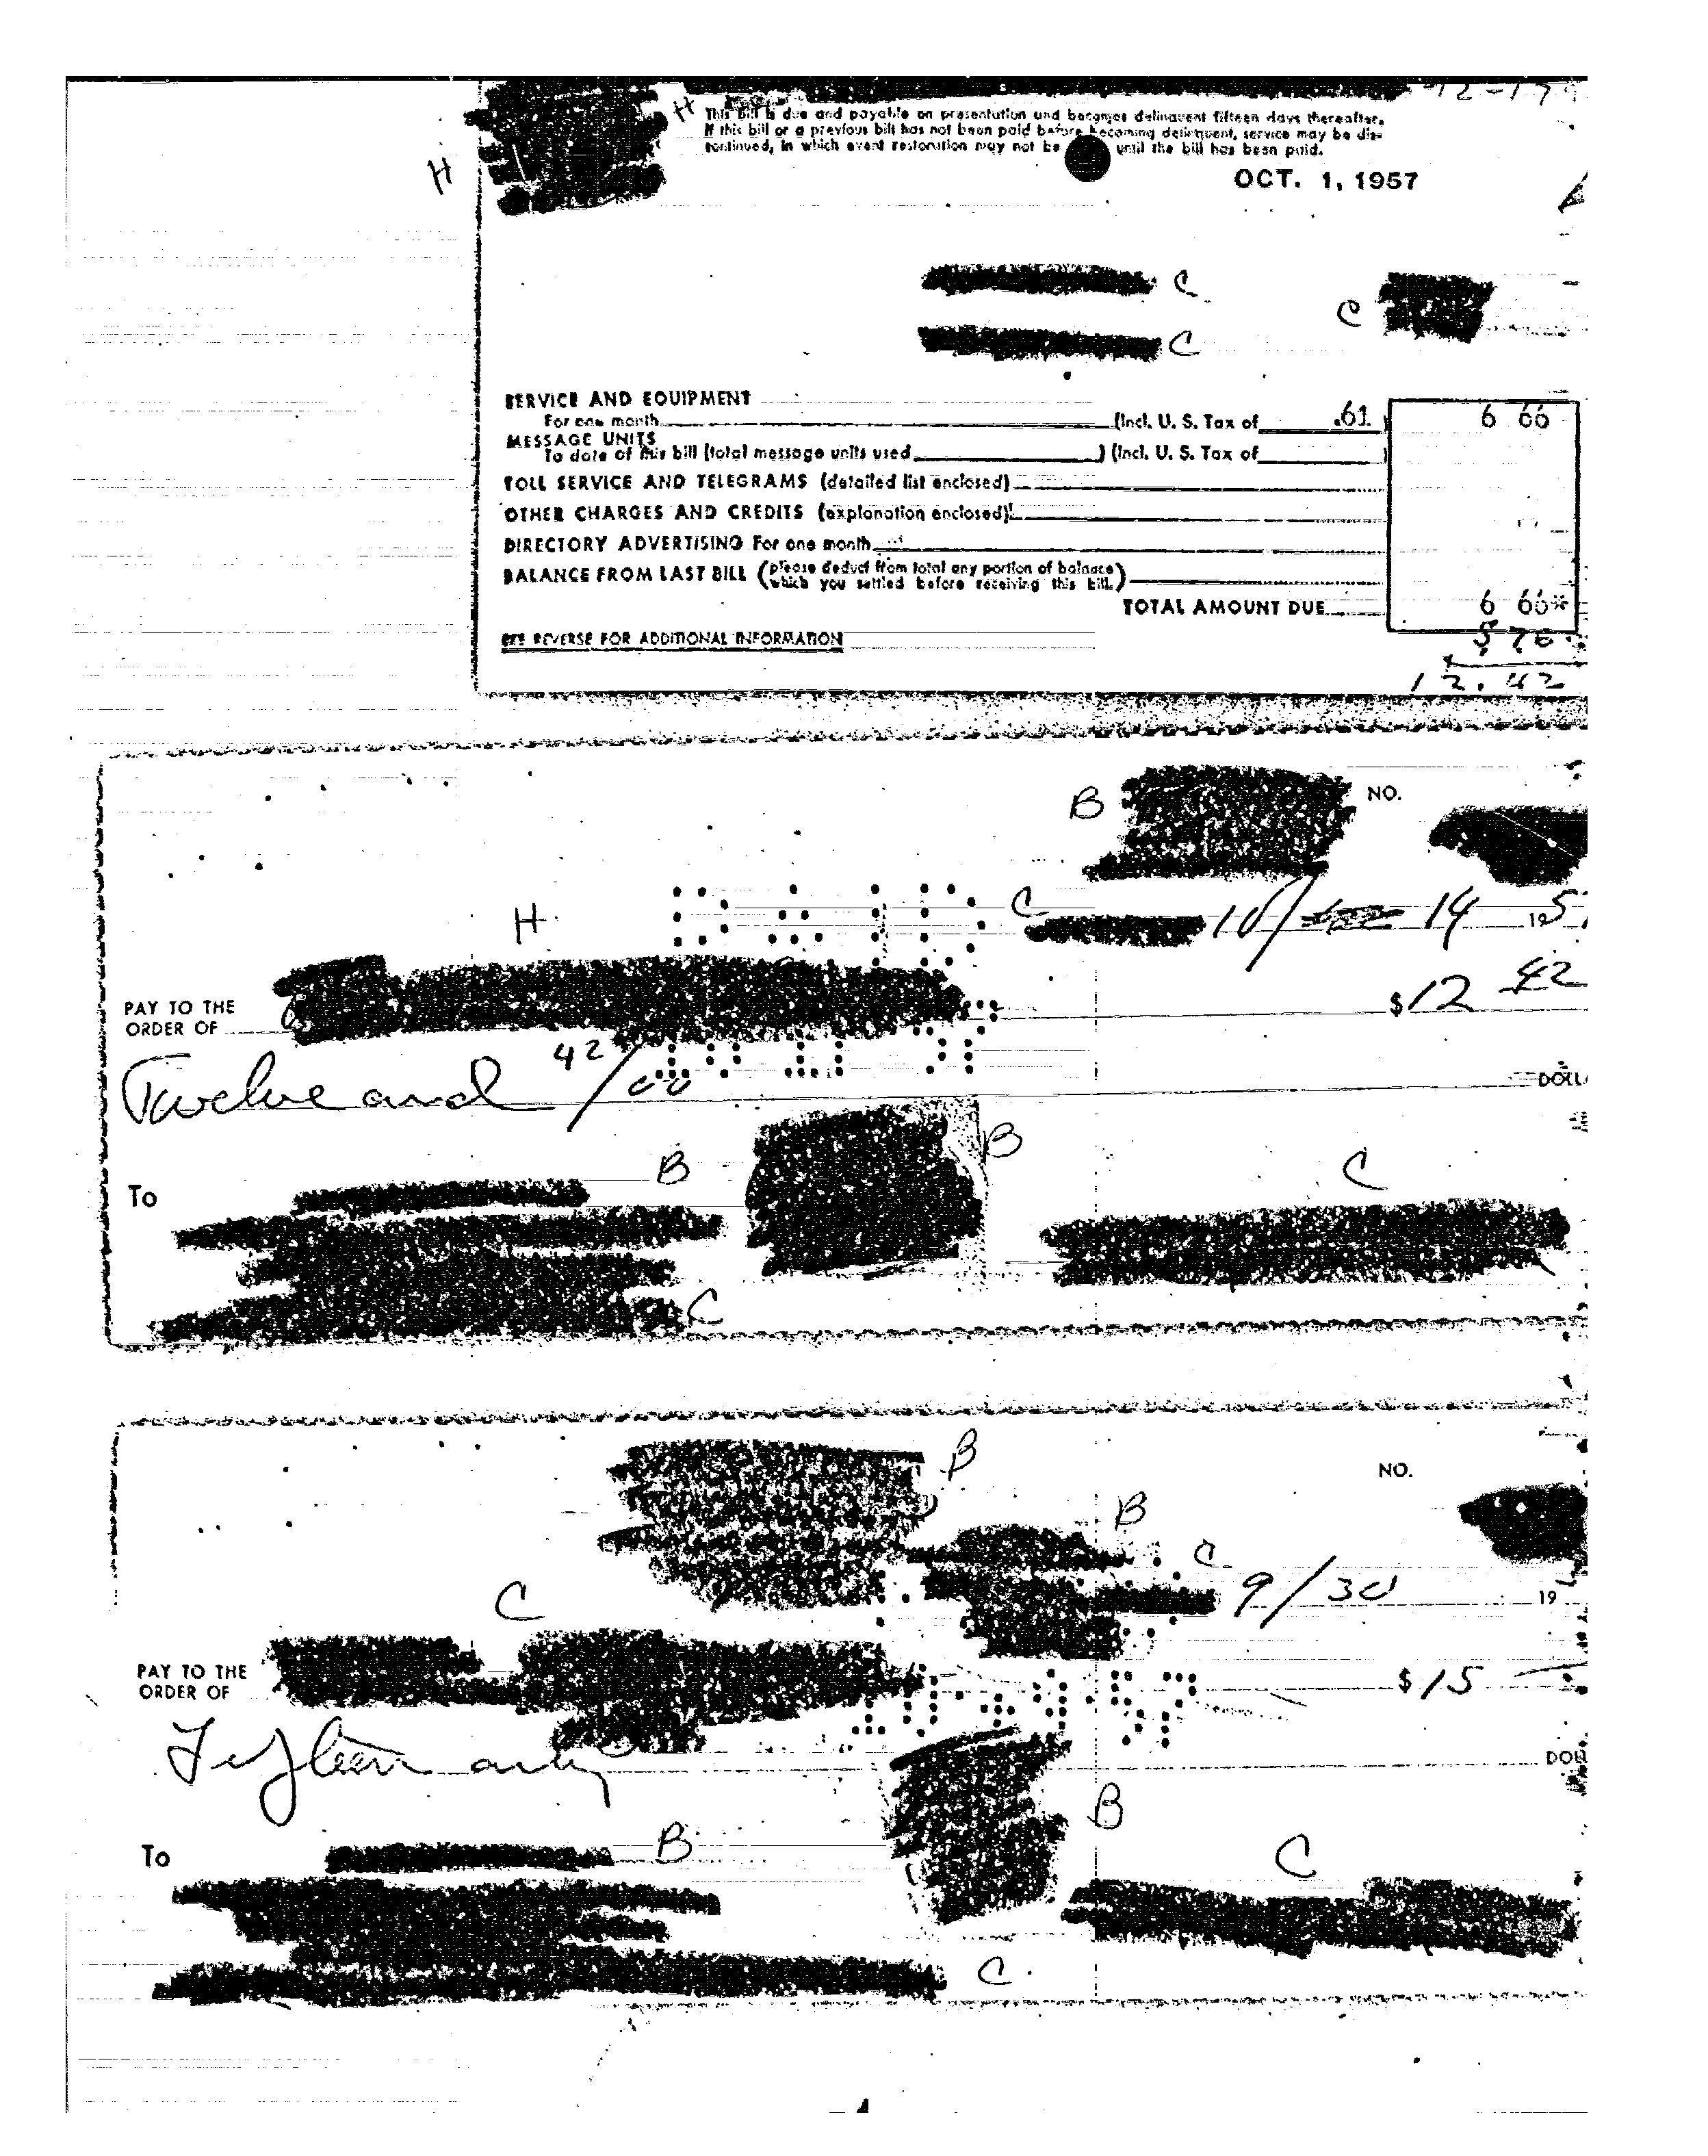 H
This bill is due and payable on presentation and becomes delinquent fifteen days thereafter.
If this bill or a previous bill has not been paid before becoming delinquent, service may be dis-
continued, in which event restoration may not be until the bill has been paid.
H
OCT. 1, 1957
C
C
C
SERVICE AND EQUIPMENT
For one month (Incl. U. S. Tax of .61 ) 6 66
MESSAGE UNITS
To date of this bill (total message units used ) (Incl. U. S. Tax of )
TOLL SERVICE AND TELEGRAMS (detailed list enclosed)
OTHER CHARGES AND CREDITS (explanation enclosed)
DIRECTORY ADVERTISING For one month
BALANCE FROM LAST BILL (please deduct from total any portion of balance
which you settled before receiving this bill.)
TOTAL AMOUNT DUE 6 66*
5 76
SEE REVERSE FOR ADDITIONAL INFORMATION
12.42
B NO.
H C 10/ 14 195
PAY TO THE
ORDER OF $12 42
Twelve and 42/00
DOLL
B B C
To
C
B
NO.
B
C 9/30 19
C
PAY TO THE
ORDER OF $15
Fifteen only
DOLL
B
To B C
C